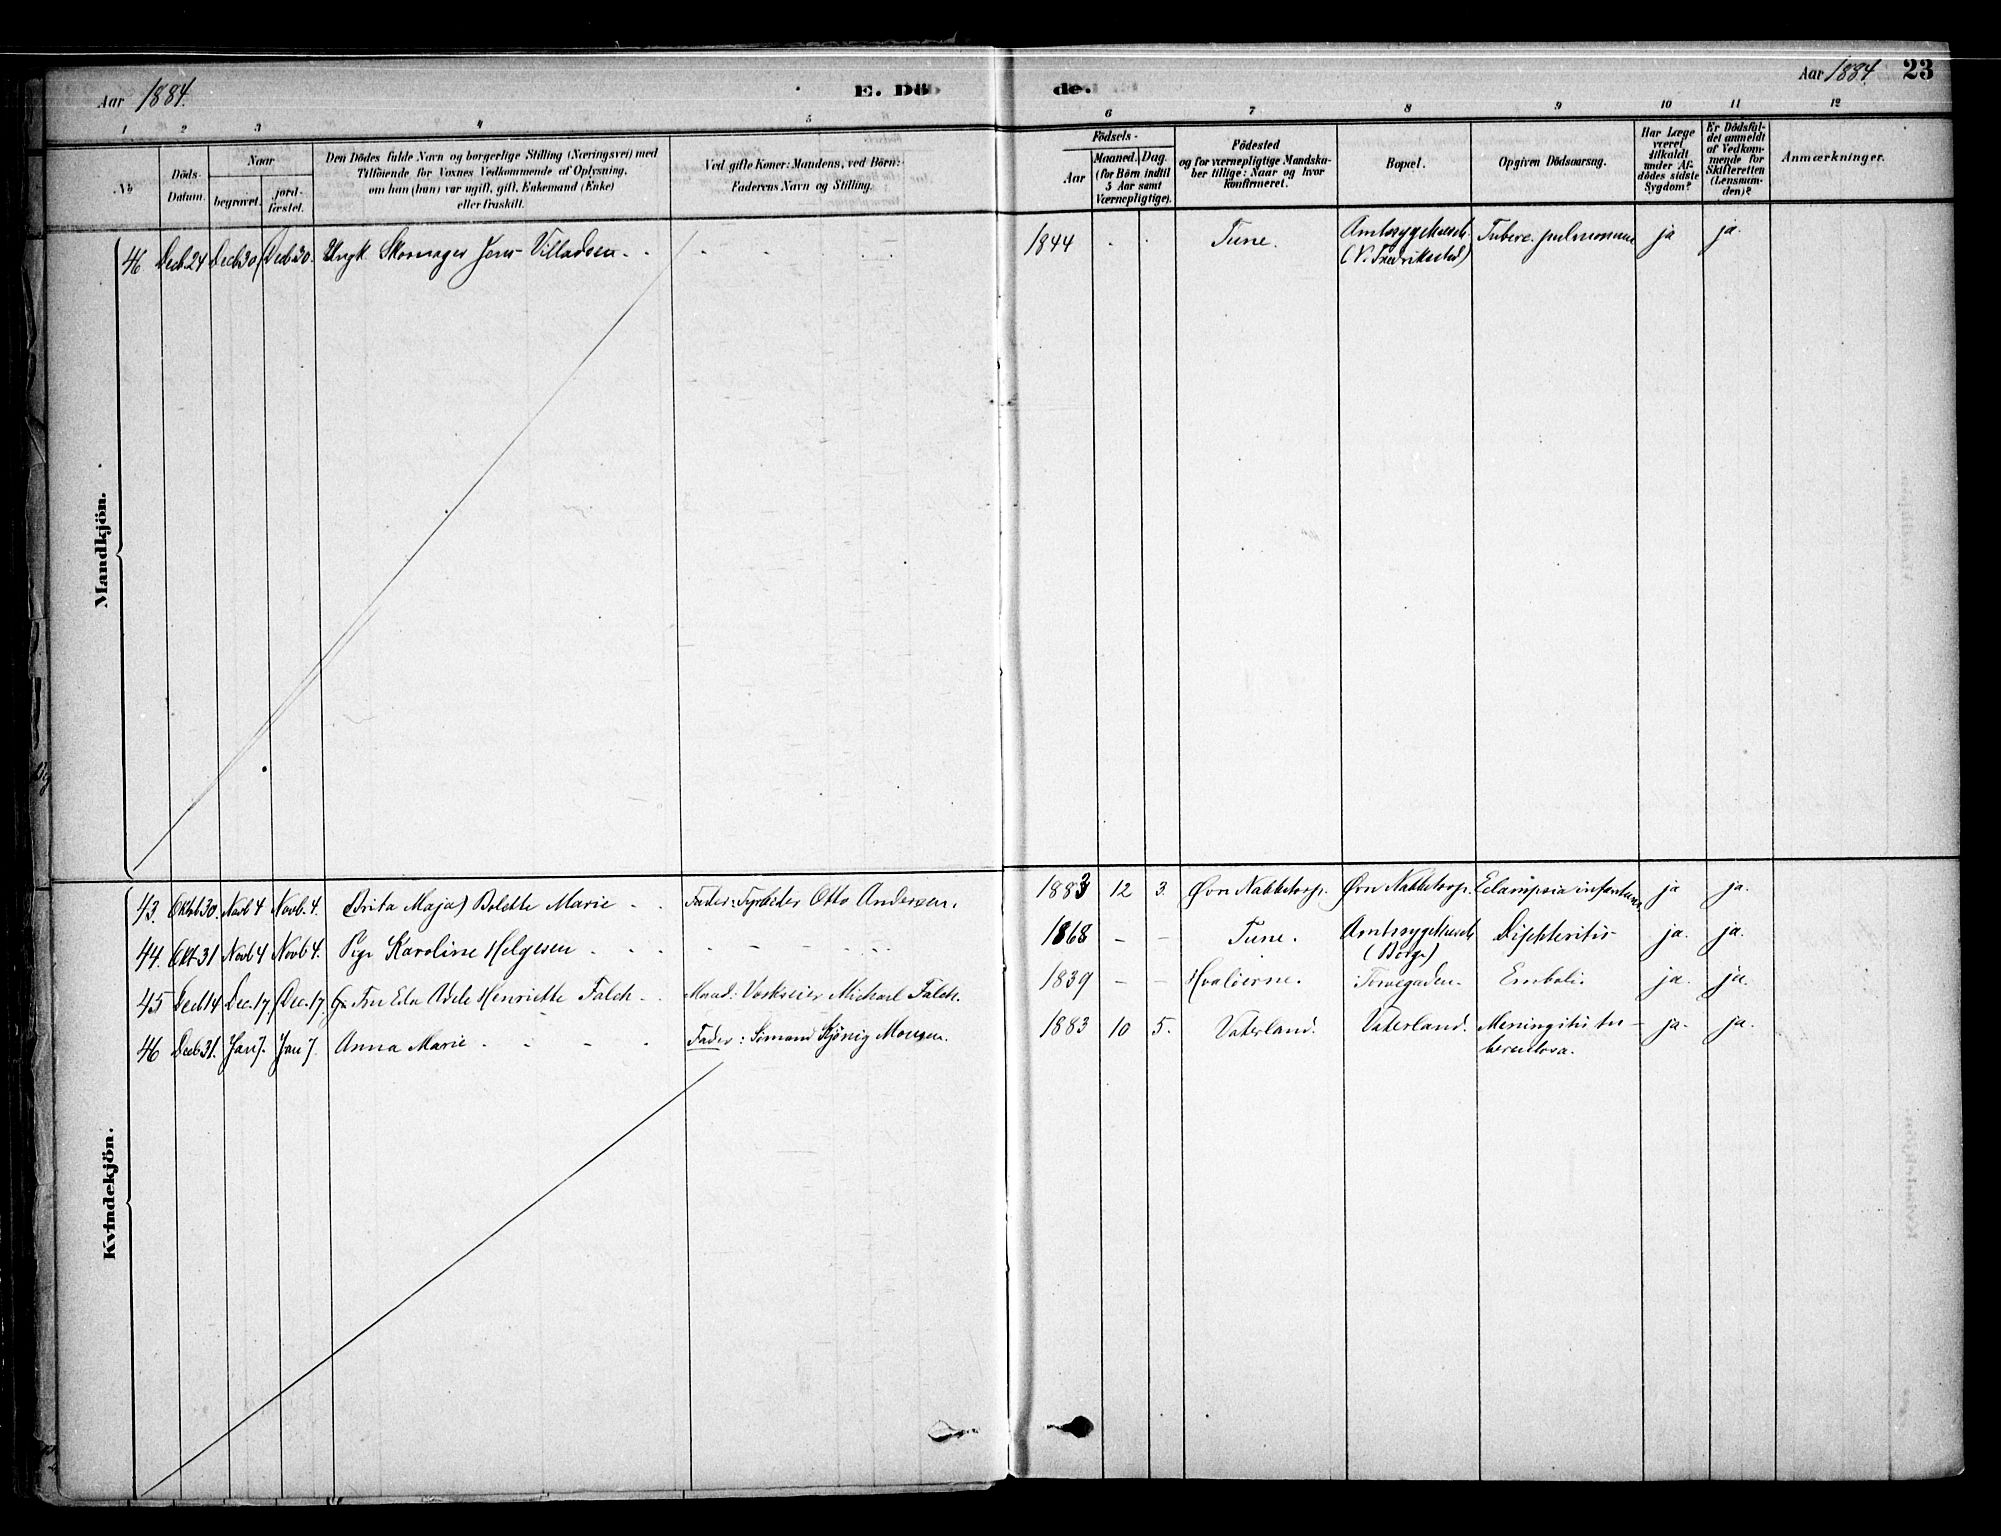 Aar 1884.
E. Döde.
Aar 1884
23
1 2 3 4 5 6 7 8 9 10 11 12
No
Döds-Datum.
Naar
begravet.
jord-fæstet.
Den Dödes fulde Navn og borgerlige Stilling (Næringsvei) med
Tilföiende for Voxnes Vedkommende af Oplysning,
om han (hun) var ugift, gift, Enkemand (Enke)
eller fraskilt.
Ved gifte Koner: Mandens, ved Börn:
Faderens Navn og Stilling.
Födsels-
Aar
Maaned. Dag.
(for Börn indtil
5 Aar samt
Værnepligtige).
Födested
og for værnepligtige Mandska-
ber tillige: Naar og hvor
konfirmeret.
Bopæl.
Opgiven Dödsaarsag.
Har Læge
været
tilkaldt
under Af-
dödes sidste
Sygdom?
Er Dödsfal-
det anmeldt
af Vedkom-
mende for
Skifteretten
(Lensman-
den)?
Anmærkninger.
Mandkjön.
46 Decb 24 Decb 30 Decb 30. Ungk. Skomager Jens Villadsen 1844 Tune. Amtssygehuset Tuberc. pulmonum ja ja.
(V. Fredrikstad)
Kvindekjön.
43. Oktb 30. Novb 4 Novb. 4. (Brita Maja) Boldte Marie Fader: Otto Andersen. 1883 12 3. Øvre Nabbetorp. Øvre Nabbetorp. Eclampsia infantum ja ja.
44. Okt 31 Novb 4 Novb 4. Pige Karoline Helgesen 1868 – – Tune. Amtssygehuset Difhteritis ja. ja.
(Borge)
45 Decb 14 Dec. 17. Dec. 17. Fru Eda Adele Henriette Falch Mand: Værkseier Michael Falch. 1839 – – Hvaløerne. Torvegaden. Emboli. ja. ja.
46 Decb 31. Jan 7. Jan 7. Anna Marie Fader: Sømand Kjönig Monsen. 1883 10 5. Vaterland. Vaterland. Meningitis tu- ja. ja.
berculosa.